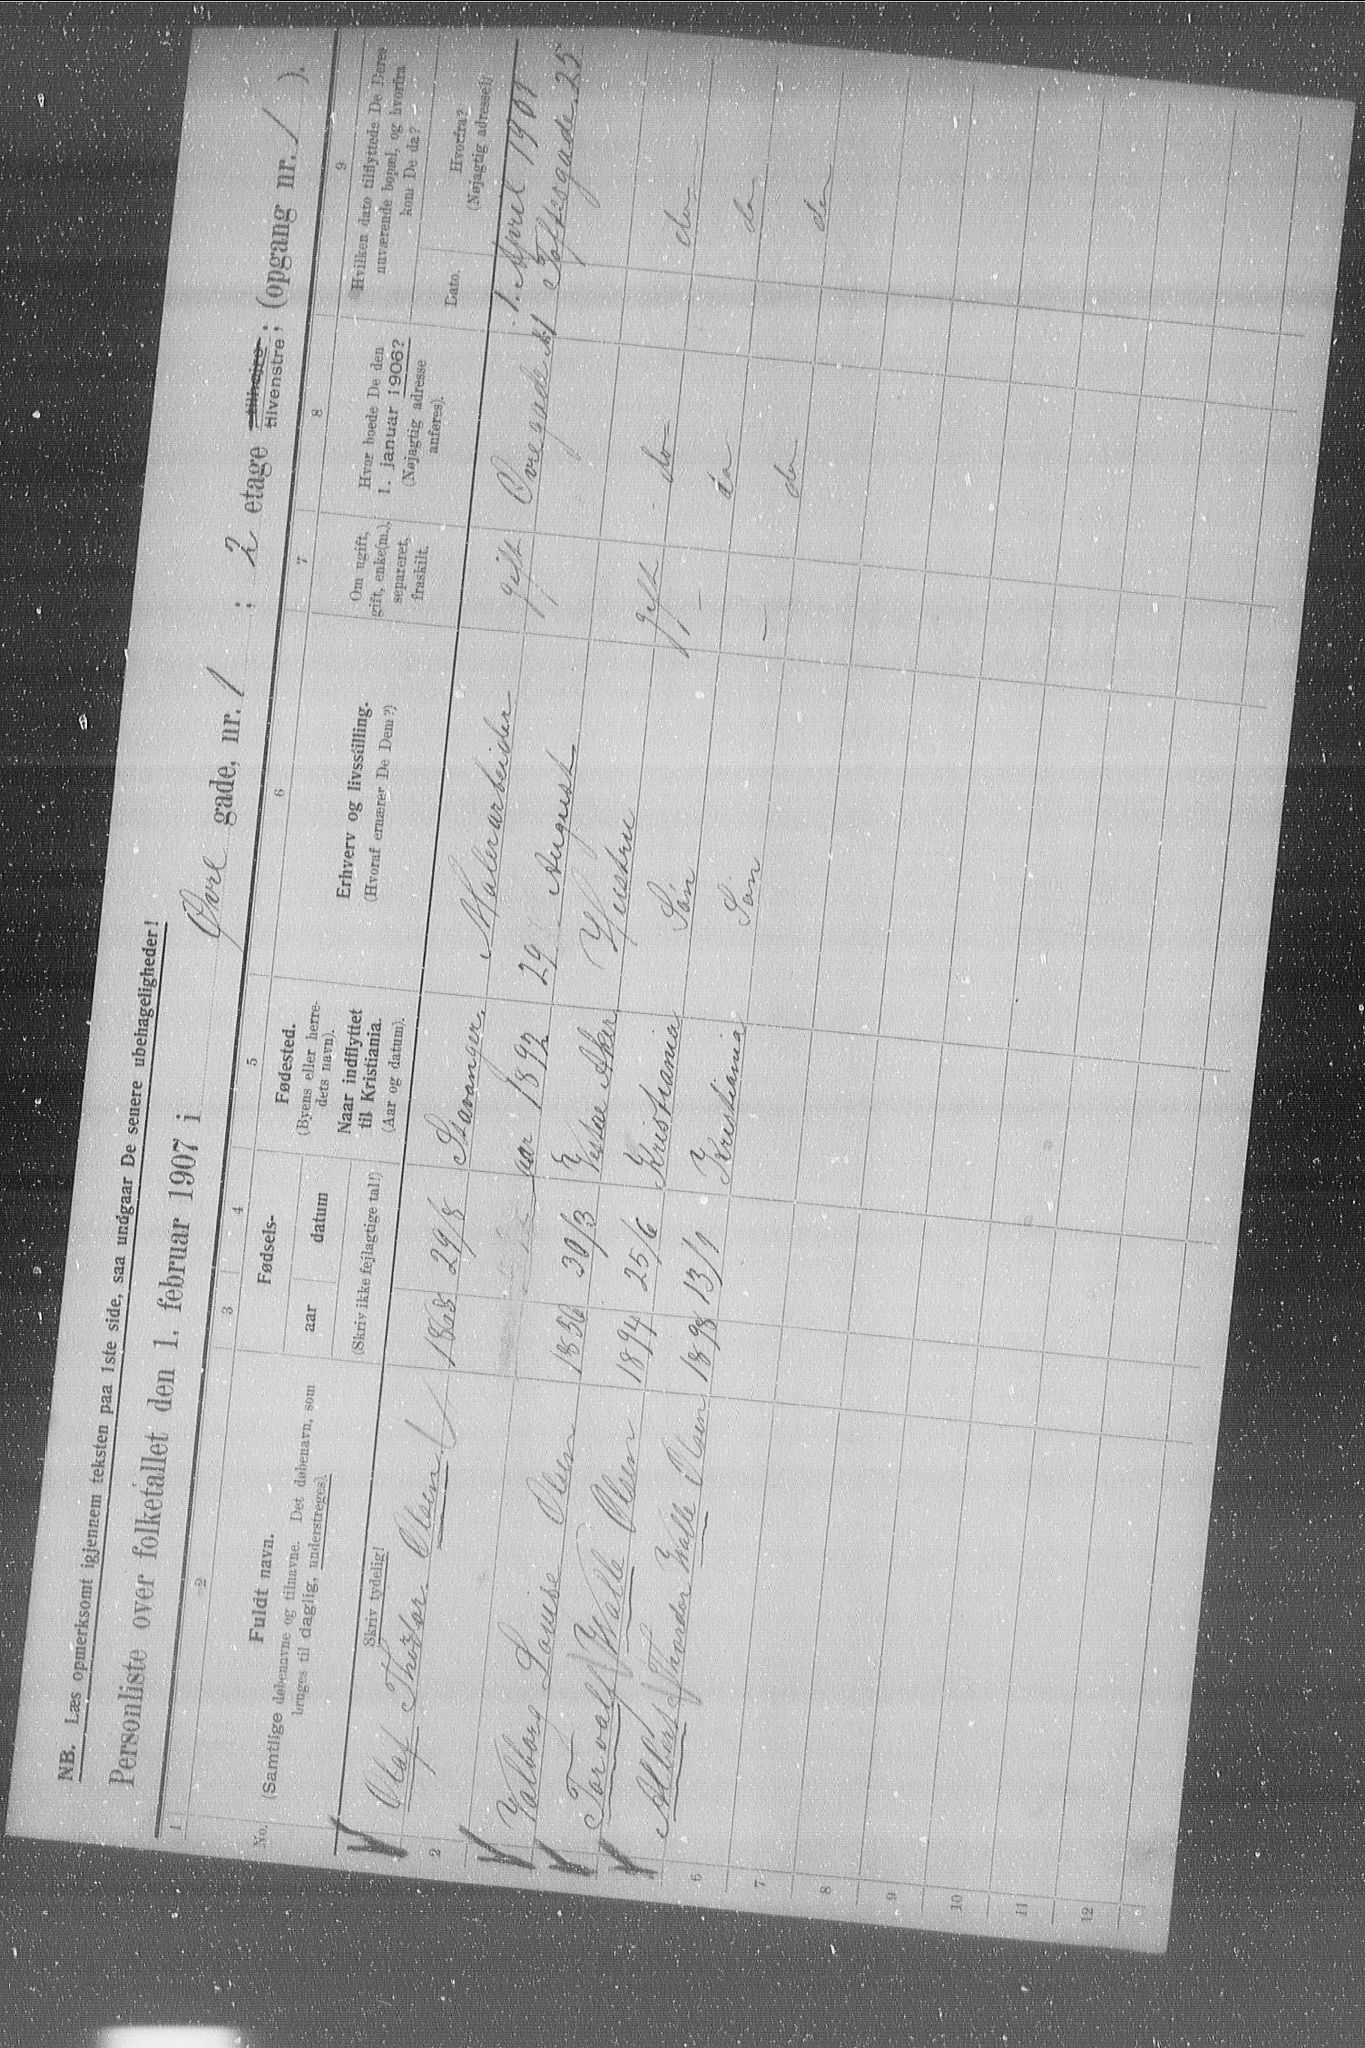 NB. Læs opmerksomt igjennem teksten paa 1ste side, saa undgaar De senere ubehageligheder!
Personliste over folketallet den 1. februar 1907 i Øvre gade, nr. 1 ; 2 etage tilhøjre tilvenstre; (opgang nr. 1 ).
1 2 3 4 5 6 7 8 9
No.
Fuldt navn.
(Samtlige døbenavne og tilnavne. Det døbenavn, som
bruges til daglig, understreges).
Skriv tydelig!
Fødsels-
aar datum
(Skriv ikke fejlagtige tal!)
Fødested.
(Byens eller herre-
dets navn).
Naar indflyttet
til Kristiania.
(Aar og datum).
Erhverv og livsstilling.
(Hvoraf ernærer De Dem?)
Om ugift,
gift, enke(m.),
separeret,
fraskilt.
Hvor boede De den
1. januar 1906?
(Nøjagtig adresse
anføres).
Hvilken dato tilflyttede De Deres
nuværende bopæl, og hvorfra
kom De da?
Dato.
Hvorfra?
(Nøjagtig adresse!)
Olaf Thor Olsen 1865 29/8 Stavanger. Malerarbeider gift Øvregade 1 1. April 1901
2 aar 1892 29 August Toftesgade 25
Valborg Louise Olsen 30/3 Vestre Aker Hustru gift do do
Torvalf Walle Olsen 1894 25/6 Kristiania Søn – do do
Albert Thordor Walle Olsen 1898 13/1 Kristiania Søn – do do
6
7
8
9
10
11
12